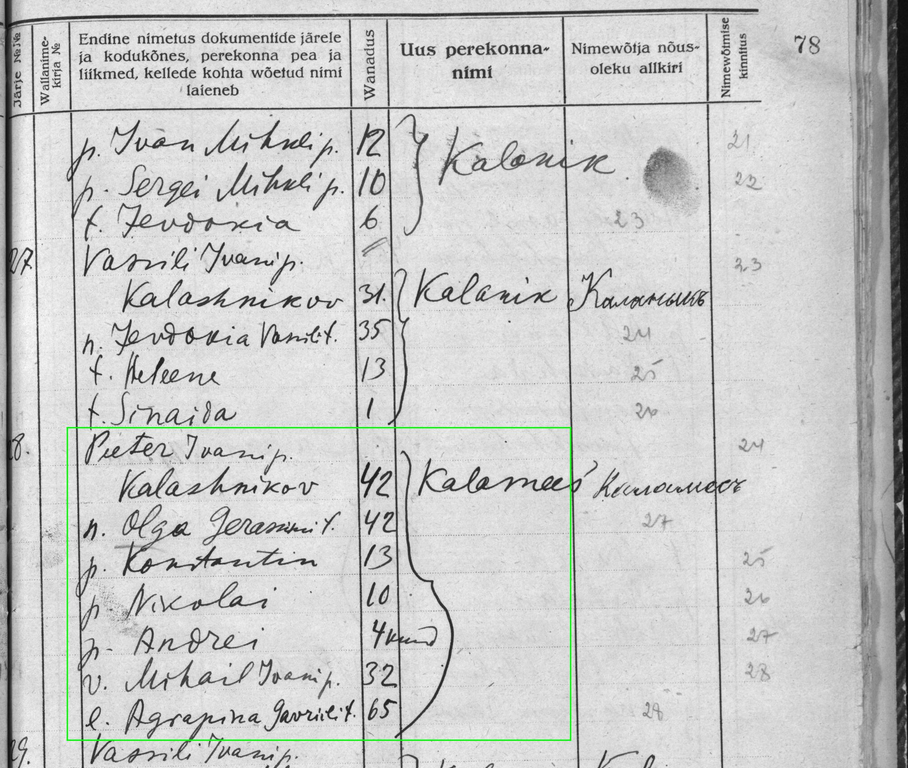 78
Järje №№
Wallanime-
kirja №
Endine nimetus dokumentide järele
ja kodukõnes, perekonna pea ja
liikmed, kellede kohta wõetud nimi
laieneb
Wanadus
Uus perekonna-
nimi
Nimewõtja nõus-
oleku allkiri
Nimewõtmise
kinnitus
p. Ivan Mihaili p. 12 Kalanik 21
p. Sergei Mihaili p. 10 22
t. Jevdokia 6 23
27. Vassili Ivani p. 23
Kalashnikov 31. Kalanik Каланикъ
n. Jevdokia Vassili t. 35 24
t. Heleene 13 25
t. Sinaida 1 26
28. Peeter Ivani p. 24
Kalashnikov 42 Kalamees Каламеес
n. Olga Gerasimi t. 42 27
p. Konstantin 13 25
p. Nikolai 10 26
p. Andrei 4 kuud 27
v. Mihail Ivani p. 32 28
e. Agrapina Gavriili t. 65 28
29. Vassili Ivani p.